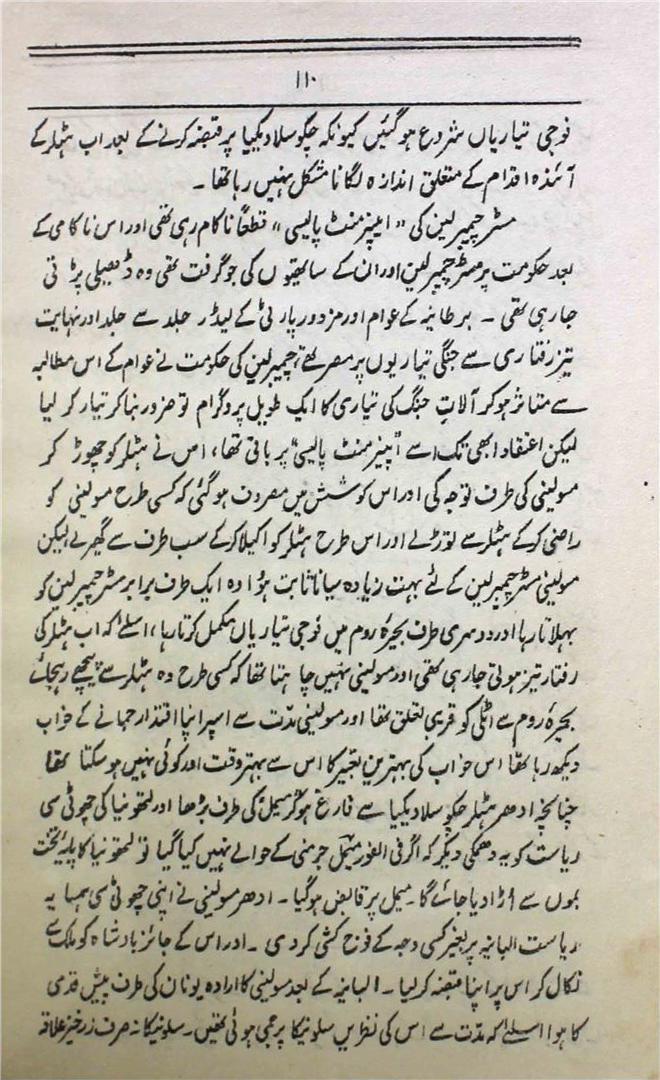 ۱۱۰
فوجی تیاریاں شروع ہو گئیں کیونکہ چکوسلاویکیا پر قبضہ کرنے کے بعد اب ہٹلر کے
آئندہ اقدام کے متعلق اندازہ لگانا مشکل نہیں رہا تھا۔
مسٹر چیمبرلین کی "اپیزمنٹ پالیسی" قطعاً ناکام رہی تھی اور اس ناکامی کے
بعد حکومت پر مسٹر چیمبرلین اور ان کے ساتھیوں کی جو گرفت تھی وہ ڈھیلی پڑتی
جا رہی تھی ۔ برطانیہ کے عوام اور مزدور پارٹی کے لیڈر جلد سے جلد اور نہایت
تیز رفتاری سے جنگی تیاریوں پر مصر تھے، چیمبرلین کی حکومت نے عوام کے اس مطالبہ
سے متاثر ہو کر آلاتِ جنگ کی تیاری کا ایک طویل پروگرام تو ضرور بنا کر تیار کر لیا
لیکن اعتقاد ابھی تک اسے "اپیزمنٹ پالیسی" پر باقی تھا، اس نے ہٹلر کو چھوڑ کر
مسولینی کی طرف توجہ کی اور اس کوشش میں مصروف ہو گئی کہ کسی طرح مسولینی کو
راضی کر کے ہٹلر سے توڑ لے اور اس طرح ہٹلر کو اکیلا کر کے سب طرف سے گھیر لے لیکن
مسولینی مسٹر چیمبرلین کے لئے بہت زیادہ سیانا ثابت ہؤا وہ ایک طرف برابر مسٹر چیمبرلین کو
بہلاتا رہا اور دوسری طرف بحیرۂ روم میں فوجی تیاریاں مکمل کرتا رہا، اسلئے کہ اب ہٹلر کی
رفتار تیز ہوتی جا رہی تھی اور مسولینی نہیں چاہتا تھا کہ کسی طرح وہ ہٹلر سے پیچھے رہ جائے
بحیرۂ روم سے اٹلی کو قریبی تعلق تھا اور مسولینی مدّت سے اسپر اپنا اقتدار جمانے کے خواب
دیکھ رہا تھا اس خواب کی بہترین تعبیر کا اس سے بہتر وقت اور کوئی نہیں ہو سکتا تھا
چنانچہ ادھر ہٹلر چکوسلاویکیا سے فارغ ہو کر میمل کی طرف بڑھا اور لتھونیا کی چھوٹی سی
ریاست کو یہ دھمکی دیکر کہ اگر فی الفور میمل جرمنی کے حوالے نہیں کیا گیا تو لتھونیا کا پایۂ تخت
بموں سے اڑا دیا جائے گا۔ میمل پر قابض ہو گیا ۔ ادھر مسولینی نے اپنی چھوٹی سی ہمسایہ
ریاست البانیہ پر بغیر کسی وجہ کے فوج کشی کر دی ۔ اور اس کے جائز بادشاہ کو ملک سے
نکال کر اس پر اپنا قبضہ کر لیا ۔ البانیہ کے بعد مسولینی کا ارادہ یونان کی طرف پیش قدمی
کا ہوا اسلئے کہ مدّت سے اس کی نظریں سلونیکا پر جمی ہوئی تھیں ۔ سلونیکا نہ صرف زرخیز علاقہ